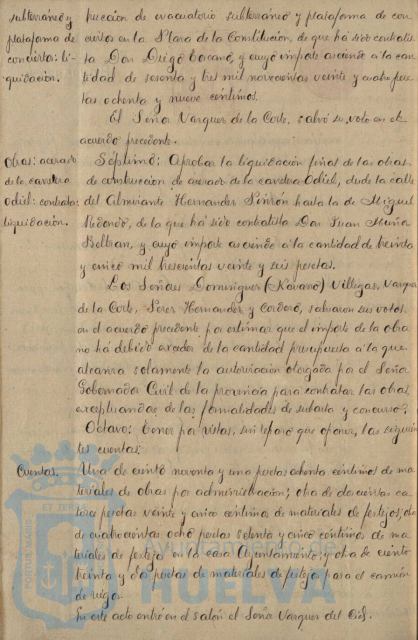 subterráneo y
plataforma de
conciertos: li-
quidación.
trucción de evacuatorio subterráneo y plataforma de con-
ciertos en la Plaza de la Constitución, de que ha sido contratis-
ta Don Diego Lozano, y cuyo importe asciende a la can-
tidad de sesenta y tres mil novecientas veinte y cuatro pese-
tas ochenta y nueve céntimos.
El Señor Vazquez de la Corte, salvó su voto en el
acuerdo precedente.
Obras: acerado
de la carretera
Odiel: contrata:
liquidación.
Séptimo: Aprobar la liquidación final de las obras
de construcción de acerado de la carretera Odiel, desde la calle
del Almirante Hernandez Pinzón hasta la de Miguel
Redondo, de la que ha sido contratista Don Juan
Beltran, y cuyo importe asciende a la cantidad de treinta
y cinco mil trescientas veinte y seis pesetas.
Los Señores Dominguez (Navarro) Villegas, Vazquez
de la Corte, Perez Hernandez y Cordero, salvaron sus votos
en el acuerdo precedente por estimar que el importe de la obra
no ha debido exceder de la cantidad presupuesta a la que
alcanza solamente la autorización otorgada por el Señor
Gobernador Civil de la provincia para contratar las obras,
exceptuandas de las formalidades de subasta y concurso.
Octavo: Tener por vistas, sin reparo que oponer, las siguien-
tes cuentas:
Cuentas.
Una de ciento noventa y una pesetas ochenta céntimos de ma-
teriales de obras por administración; otra de doscientas ca-
torce pesetas veinte y cinco céntimos de materiales de festejos; otra
de cuatrocientas ocho pesetas setenta y cinco céntimos de ma-
teriales de festejos en la casa Ayuntamiento; y otra de ciento
treinta y dos pesetas de materiales de festejos para el camión
de riego.
En este acto entró en el salón el Señor Vazquez del Cid.
PORTUS MARIS
ET TER
HUELVA